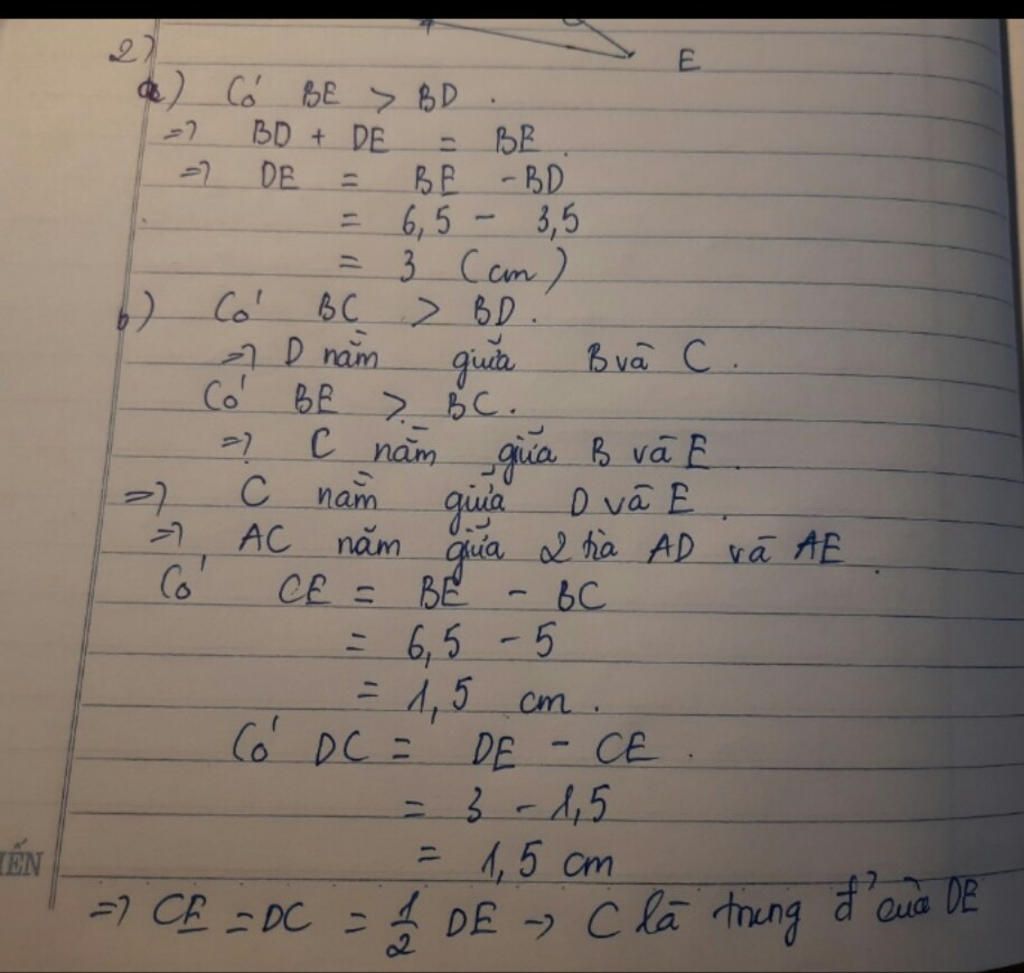 E
2)
a) Có BE > BD.
=> BD + DE = BE.
=> DE = BE - BD
= 6,5 - 3,5
= 3 (cm)
b) Có BC > BD.
=> D nằm giữa B và C.
Có BE > BC.
=> C nằm giữa B và E.
=> C nằm giữa D và E.
=> AC nằm giữa 2 tia AD và AE.
Có CE = BE - BC
= 6,5 - 5
= 1,5 cm.
Có DC = DE - CE.
= 3 - 1,5
= 1,5 cm
IẾN
=> CE = DC = 1/2 DE -> C là trung đ' của DE